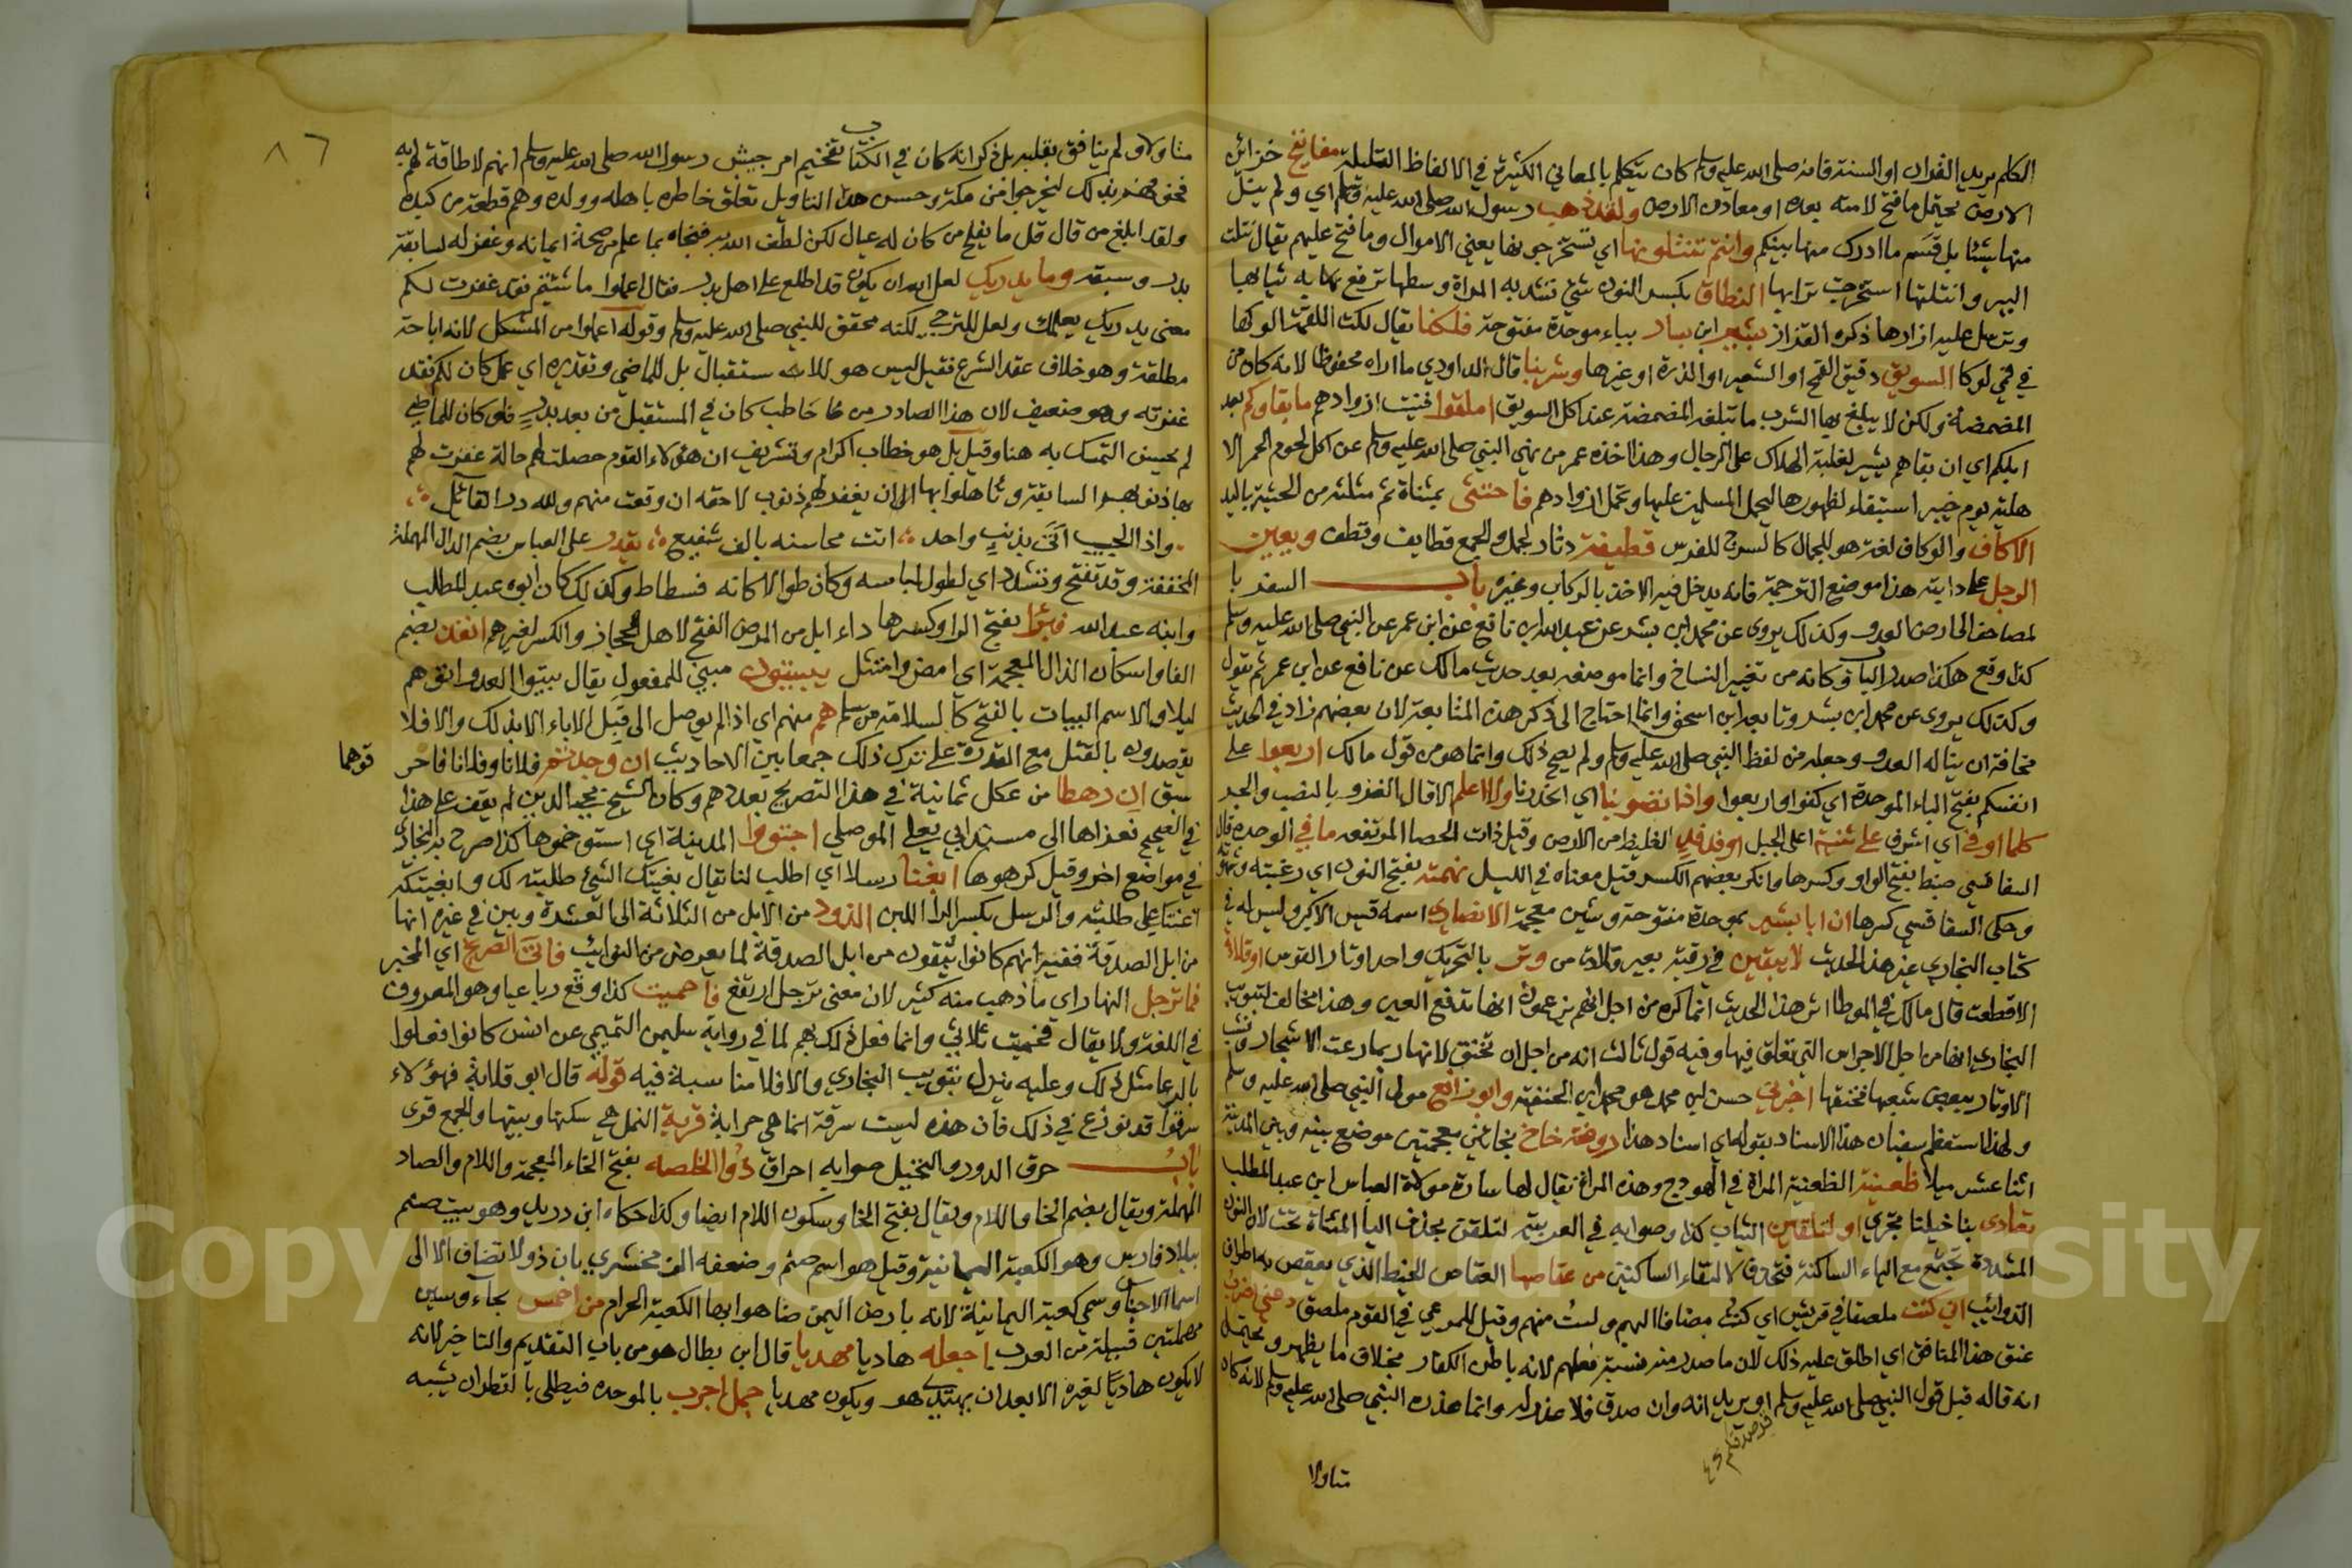 الكلم يريد القران او السنة فانه صلى الله عليه وسلم كان يتكلم بالمعاني الكثيرة في الالفاظ القليلة مفاتيح خزائن
الارض يحتمل ما فتح لامته بعده او معادن الارض ولقد ذهب رسول الله صلى الله عليه وسلم اي ولم ينل
منها شيئا بل قسم ما ادرك منها بينكم وانتم تنتثلونها اي تستخرجونها يعني الاموال وما فتح عليهم يقال نثلت
البير وانتثلتها استخرجت ترابها النطاق بكسر النون شئ تشد به المراة وسطها ترفع به ثيابها
وترسل عليه ازارها ذكره القزاز بشير ابن يسار بباء موحدة مفتوحة فلكنا يقال لكت اللقمة الوكها
في فمي لوكا السويق دقيق القمح او الشعير او الذرة او غيرها وشربنا قال الداودي ما اراه محفوظا لانه كان من
المضمضة ولكن لا يبلغ بها الشرب ما تبلغه المضمضة عند اكل السويق املقوا فنيت ازوادهم ما بقاوكم بعد
ابلكم اي ان بقاهم يسير لغلبة الهلاك على الرجال وهذا اخذه عمر من نهي النبي صلى الله عليه وسلم عن اكل لحوم الحمر الا
هلية يوم خيبر استبقاء لظهورها ليحمل المسلمين عليها وتحمل ازوادهم فاحتثى بمثناة ثم مثلثه من الحثية باليد
الاكاف والوكاف لغة هو للجمال كالسرج للفرس قطيفة دثار مخمل والجمع قطايف وقطف ويعين
الرجل على دابته هذا موضع الترجمة فانه يدخل فيه الاخذ بالركاب وغيره باب السفر با
لمصاحف الى ارض العدو وكذلك يروى عن محمد ابن بشر عن عبيد الله ابن نافع عن ابن عمر عن النبي صلى الله عليه وسلم
كذا وقع هكذا صدر الباب وكانه من تغيير النساخ وانما موضعه بعد حديث مالك عن نافع عن ابن عمر ثم يقول
وكذلك يروى عن محمد ابن بشر وتابعه ابن اسحق وانما احتاج الى ذكر هذه المتابعة لان بعضهم زاد في الحديث
مخافة ان يناله العدو وجعله من لفظ النبي صلى الله عليه وسلم ولم يصح ذلك وانما هو من قول مالك اربعوا على
انفسكم بفتح الباء الموحدة اي كفوا واربعوا واذا تصوبنا اي انحدرنا ولا اعلم الا قال الغزو بالنصب والجر
كلما اوفى اي اشرف على ثنية اعلى الجبل او فدفد الغليظ من الارض وقيل ذات الحصا المرتفعه ما في الوحدة قال
السفاقسي ضبط بفتح الواو وكسرها وانكر بعضهم الكسر قيل معناه في الليل نهمته بفتح النون اي رغبته وشهوته
وحكى السفاقسي كسرها ان ابا بشير بموحدة مفتوحة وشين معجمة الانصاري اسمه قيس الاكبر وليس له في
كتاب البخاري غير هذا الحديث لا يبقين في رقبة بعير قلادة من وتر بالتحريك واحد اوتار القوس او قلادة
الا قطعت قال مالك في الموطا اثر هذا الحديث انما كره من اجل انهم يزعمون انها تدفع العين وهذا مخالف لتبويب
البخاري انها من اجل الاجراس التي تعلق فيها وفيه قول ثالث انه من اجل ان تختنق لانها ربما رعت الاشجار ونشب
الاوتار ببعض شعبها فخنقها اخبرني حسن ابن محمد هو محمد ابن الحنفية وابو رافع مولى النبي صلى الله عليه وسلم
ولهذا استعظم سفيان هذا الاسناد بقوله اي اسناد هذا روضة خاخ بخائين معجمتين موضع بينه وبين المدينة
اثنا عشر ميلا ظعينة الظعينة المراة في الهودج وهذه المراة يقال لها سارة مولاة العباس ابن عبد المطلب
تعادى بنا خيلنا تجري او لتلقين الثياب كذا وصوابه في العربية لتلقن بحذف اليا المثناة تحت لان النون
المشددة تجتمع مع الياء الساكنة فتحذف لالتقاء الساكنين من عقاصها العقاص الخيط الذي يعقص به اطراف
الذوائب اني كنت ملصقا في قريش اي كنت مضافا اليهم ولست منهم وقيل للمدعي في القوم ملصق دعني اضرب
عنق هذا المنافق اي اطلق عليه ذلك لان ما صدر منه يشبه فعلهم لانه باطن الكفار بخلاف ما يظهر ويحتمل
انه قاله قبل قول النبي صلى الله عليه وسلم او يريد انه وان صدق فلا عذر له وانما عذره النبي صلى الله عليه وسلم لانه كان
متاولا
٨٦
متاولا ولم ينافق بقلبه بل ذكر انه كان في الكتاب تفخيم امر جيش رسول الله صلى الله عليه وسلم انهم لا طاقة لهم به
فخوفهم بذلك ليخرجوا من مكة وحسن هذا التاويل تعلق خاطره باهله وولده وهم قطعة من كبده
ولقد ابلغ من قال قل ما يفلح من كان له عيال لكن لطف الله به فنجاه بما علم من صحة ايمانه وغفر له لسابقة
بدر وسبقه وما يدريك لعل الله ان يكون قد اطلع على اهل بدر فقال اعملوا ما شئتم فقد غفرت لكم
معنى يدريك يعلمك ولعل للترجي لكنه محقق للنبي صلى الله عليه وسلم وقوله اعملوا من المشكل لانه اباحة
مطلقة وهو خلاف عقد الشرع فقيل ليس هو للاستقبال بل للماضي وتقديره اي عمل كان لكم فقد
غفرته وهو ضعيف لان هذا الصادر من خاطب كان في المستقبل من بعد بدر فلو كان للماضي
لم يحسن التمسك به هنا وقيل بل هو خطاب اكرام وتشريف ان هؤلاء القوم حصلت لهم حالة غفرت لهم
بها ذنوبهم السابقة وتاهلوا بها الى ان يغفر لهم ذنوب لاحقه ان وقعت منهم ولله در القائل
واذا الحبيب اتى بذنب واحد اتت محاسنه بالف شفيع يقدر على العباس بضم الدال المهملة
المخففة وقد تفتح وتشدد اي لطول لباسه وكان طوالا كانه فسطاط وكذلك كان ابوه عبد المطلب
وابنه عبد الله فبرا بفتح الرا وكسرها داء ابل من المرض الفتح لاهل الحجاز والكسر لغيرهم انفذ بضم
الفا واسكان الذال المعجمة اي امض وامتثل يبيتون مبني للمفعول يقال بيتوا العدو اتوهم
ليلا والاسم البيات بالفتح كالسلامة من سلم هم منهم اي اذا لم يوصل الى قتل الاباء الا بذلك والا فلا
يقصدون بالقتل مع القدرة على ترك ذلك جمعا بين الاحاديث ان وجدتم فلانا وفلانا فاحر
قوهما
سبق ان رهطا من عكل ثمانية في هذا التصريح بعددهم وكان الشيخ محيي الدين لم يقف على هذا
في الصحيح فعزاها الى مسند ابي يعلى الموصلي اجتووا المدينة اي استوخموها كذا صرح به البخاري
في مواضع اخر وقيل كرهوها ابغنا رسلا اي اطلب لنا يقال بغيتك الشئ طلبته لك وابغيتكه
اعنتك على طلبه والرسل بكسر الرا اللبن الذود من الابل من الثلاثة الى العشرة وبين في غيره انها
من ابل الصدقة ففيه انهم كانوا يبقون من ابل الصدقة لما يعرض من النوايب فاتى الصريخ اي المخبر
فما ترجل النهار اي ما ذهب منه كثير لان معنى ترجل ارتفع فاحميت كذا وقع رباعيا وهو المعروف
في اللغة ولا يقال فحميت ثلاثي وانما فعل ذلك بهم لما في رواية سليمن التميمي عن انس كانوا فعلوا
بالرعا مثل ذلك وعليه ينزل تبويب البخاري والا فلا مناسبة فيه قوله قال ابو قلابة فهؤلاء
سرقوا قد نوزع في ذلك فان هذه ليست سرقة انما هي حرابة قرية النمل هي سكنها وبيتها والجمع قرى
باب حرق الدور والنخيل صوابه احراق ذو الخلصه بفتح الخاء المعجمة واللام والصاد
المهملة ويقال بضم الخا واللام ويقال بفتح الخا وسكون اللام ايضا وكذا حكاه ابن دريد وهو بيت صنم
ببلاد فارس وهو الكعبة اليمانية وقيل هو اسم صنم وضعفه الزمخشري بان ذو لا تضاف الا الى
اسما الاجناس وسمي كعبة اليمانية لانه بارض اليمن ضاهوا بها الكعبة الحرام من احمس بحاء وسين
مهملتين قبيلة من العرب اجعله هاديا مهديا قال ابن بطال هو من باب التقديم والتاخير لانه
لا يكون هاديا لغيره الا بعد ان يهتدي هو ويكون مهديا جمل اجرب بالموحدة فيطلى بالقطران يشبه
Copyright © King Saud University